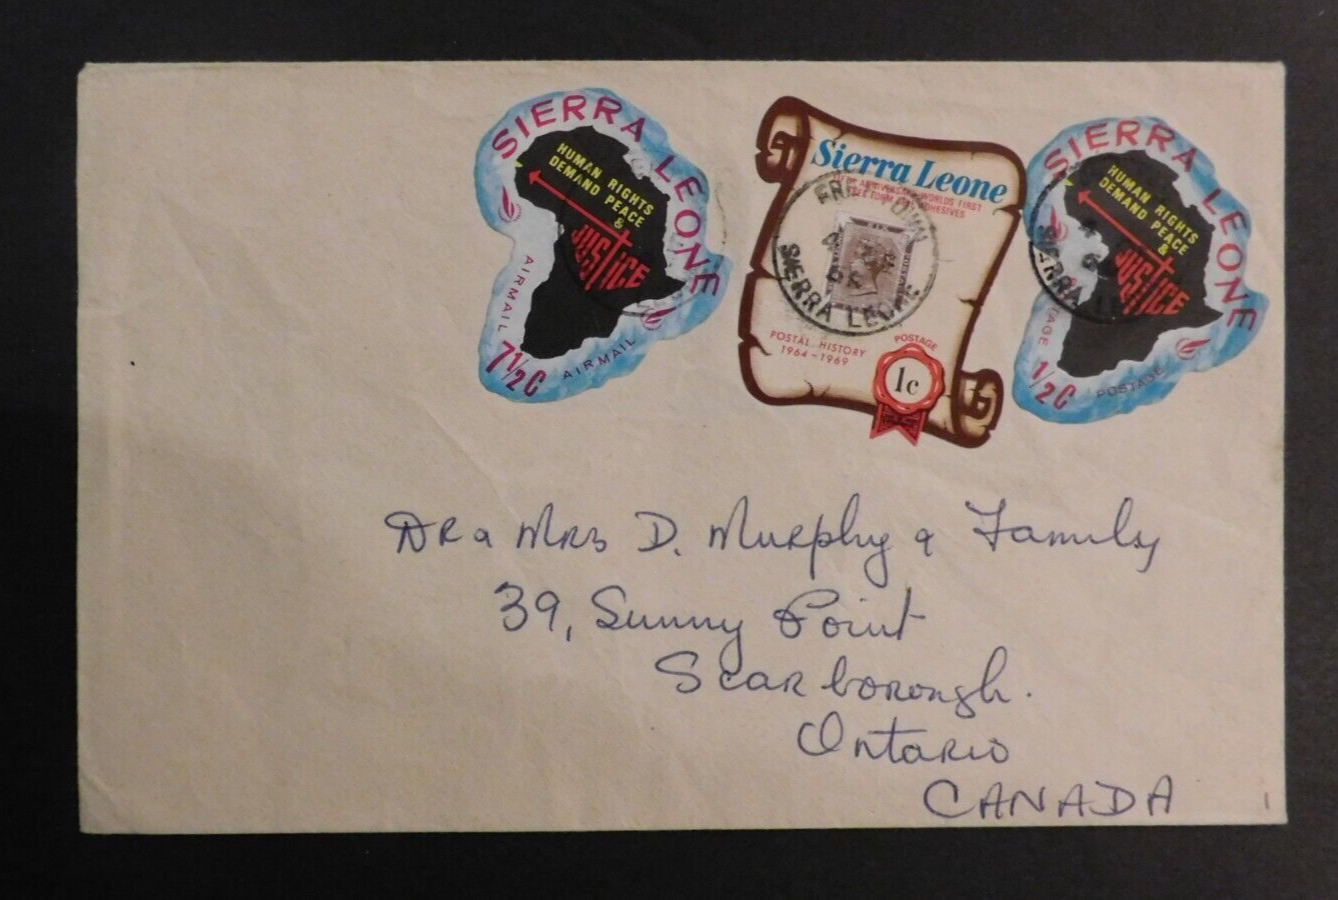 SIERRA LEONE
HUMAN RIGHTS
DEMAND PEACE
&
JUSTICE
AIRMAIL
7½C
AIRMAIL
Sierra Leone
ANNIVERSARY WORLDS FIRST
FREE FORM ADHESIVES
FREETOWN
SIERRA LEONE
POSTAL HISTORY
1964-1969
POSTAGE
1c
SIERRA LEONE
HUMAN RIGHTS
DEMAND PEACE
&
JUSTICE
POSTAGE
½C
POSTAGE
SIERRA LE
DR & MRS D. Murphy & Family
39, Sunny Point
Scarborough.
Ontario
CANADA